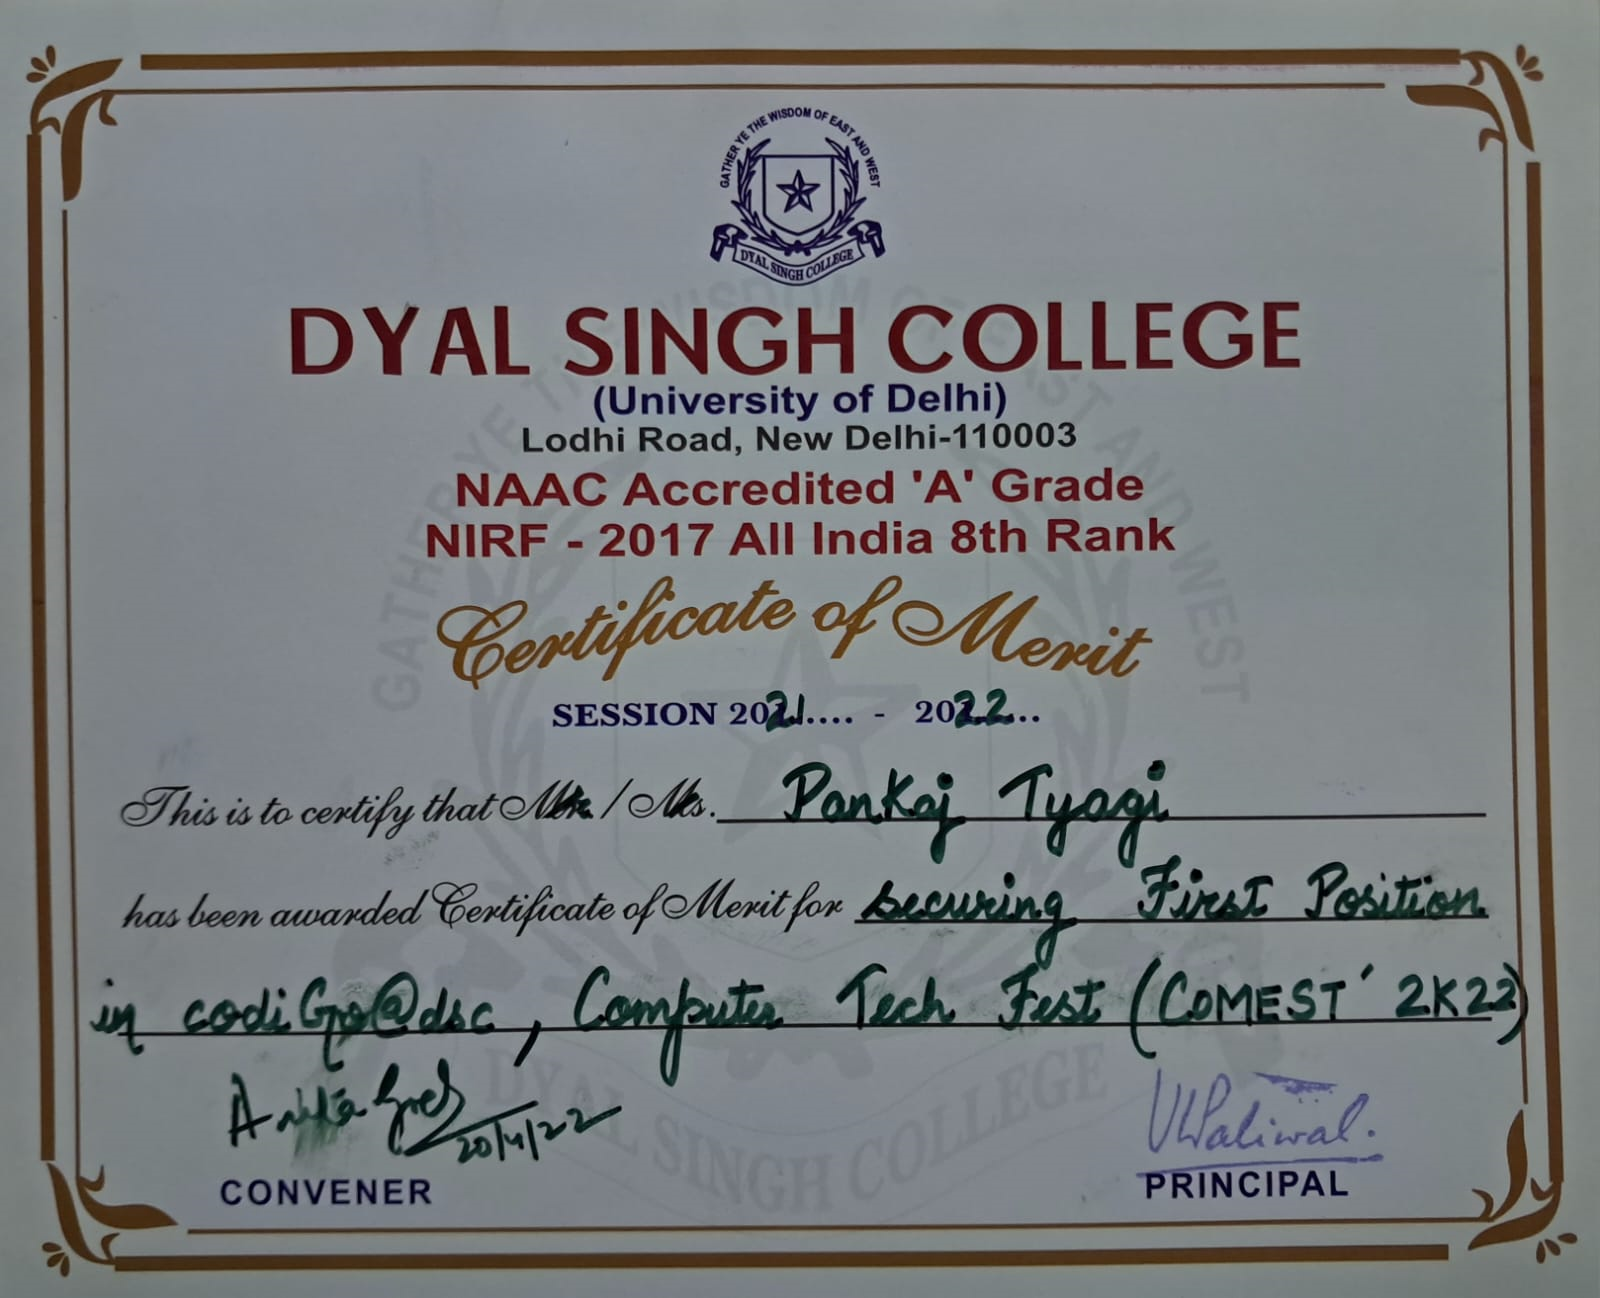 GATHER YE THE WISDOM OF EAST AND WEST
DYAL SINGH COLLEGE
DYAL SINGH COLLEGE
(University of Delhi)
Lodhi Road, New Delhi-110003
NAAC Accredited 'A' Grade
NIRF - 2017 All India 8th Rank
Certificate of Merit
SESSION 2021.... - 2022...
This is to certify that Mr. / Ms. Pankaj Tyagi
has been awarded Certificate of Merit for securing First Position
in codiGo@dsc, Computer Tech Fest (COMEST' 2K22)
20/4/22
VKPaliwal.
CONVENER
PRINCIPAL
GATHER YE THE WISDOM OF EAST AND WEST
DYAL SINGH COLLEGE